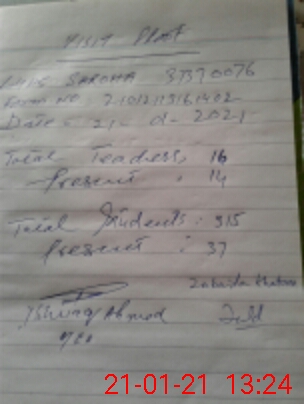 VISIT PROOF
GHS SAROHA 37370076
Form No: 21012113161402
Date: 21-01-2021
Total Teachers: 16
Present: 14
Total Students: 315
Present: 37
Zahaida Khatoon
Ishtiaq Ahmad
21-01-21 13:24